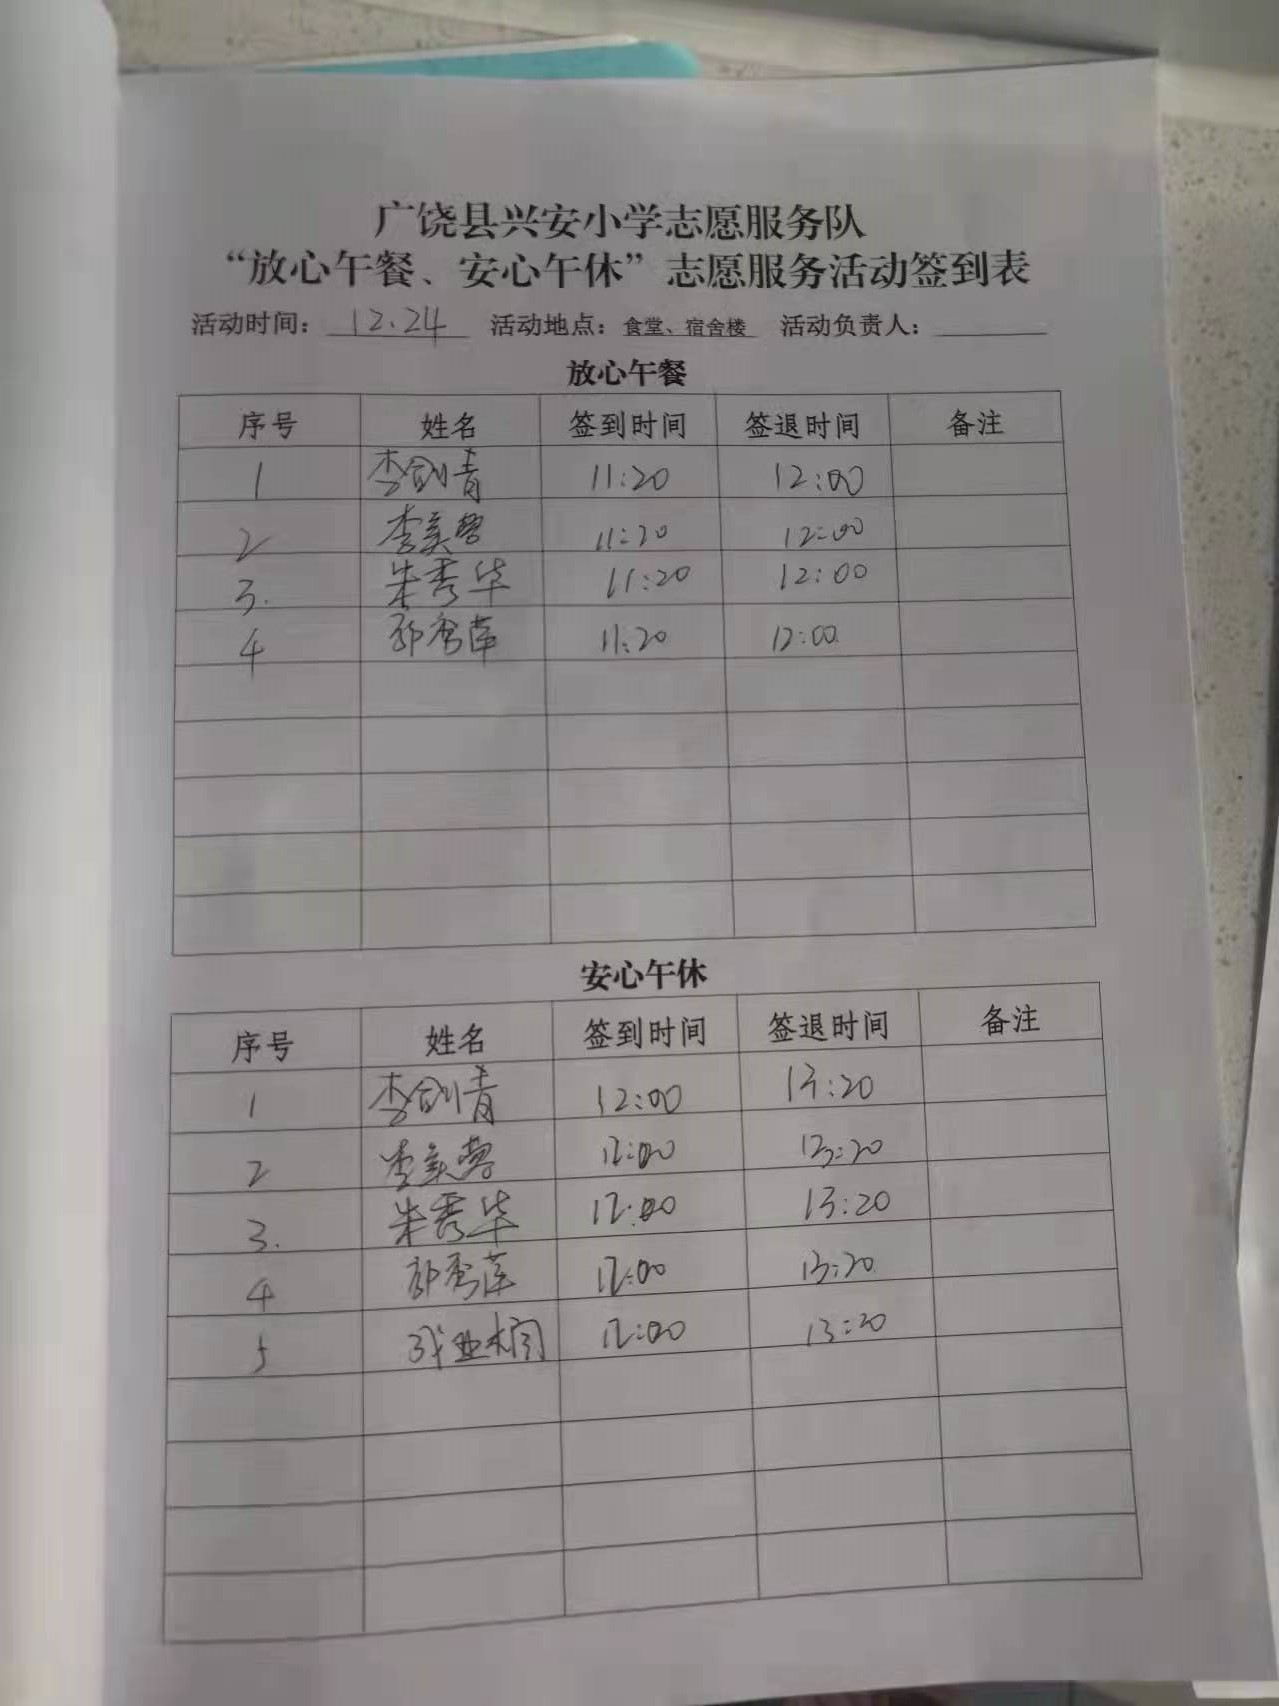 广饶县兴安小学志愿服务队
“放心午餐、安心午休”志愿服务活动签到表
活动时间：12.24 活动地点：食堂、宿舍楼 活动负责人：
放心午餐
序号 姓名 签到时间 签退时间 备注
1 李剑青 11:20 12:00
2 李美营 11:20 12:00
3. 朱秀华 11:20 12:00
4 郭秀萍 11:20 12:00
安心午休
序号 姓名 签到时间 签退时间 备注
1 李剑青 12:00 13:20
2 李美营 12:00 13:20
3. 朱秀华 12:00 13:20
4 郭秀萍 12:00 13:20
5 12:00 13:20